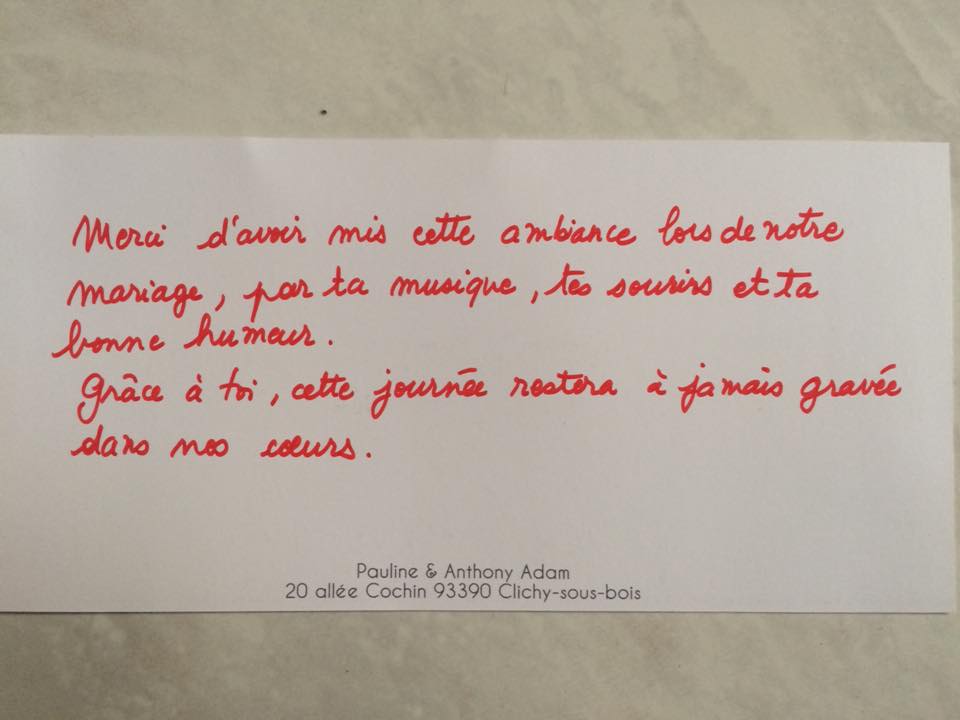 Merci d'avoir mis cette ambiance lors de notre
mariage, par ta musique, tes sourirs et ta
bonne humeur.
Grâce à toi, cette journée restera à jamais gravée
dans nos cœurs.
Pauline & Anthony Adam
20 allée Cochin 93390 Clichy-sous-bois